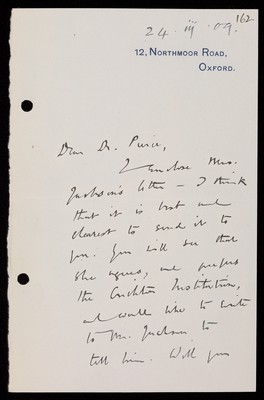 162
24. iii. 09.
12, NORTHMOOR ROAD,
OXFORD.
Dear Dr. Peirce,
I enclose Mrs.
Jackson's letter – I think
that it is best and
clearest to send it to
you. You will see that
she agrees, and prefers
the Crichton Institution,
and would like to write
to Mr. Jackson to
tell him. Will you